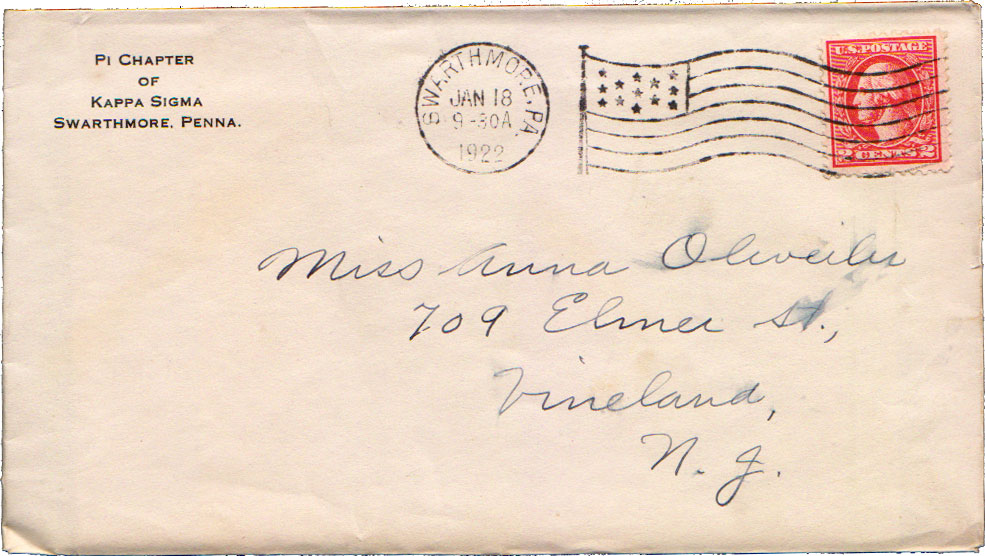 PI CHAPTER
OF
KAPPA SIGMA
SWARTHMORE, PENNA.
SWARTHMORE, PA.
JAN 18
9-30A
1922
U.S. POSTAGE
2 CENTS 2
Miss Anna Olweiler
709 Elmer St.,
Vineland,
N. J.